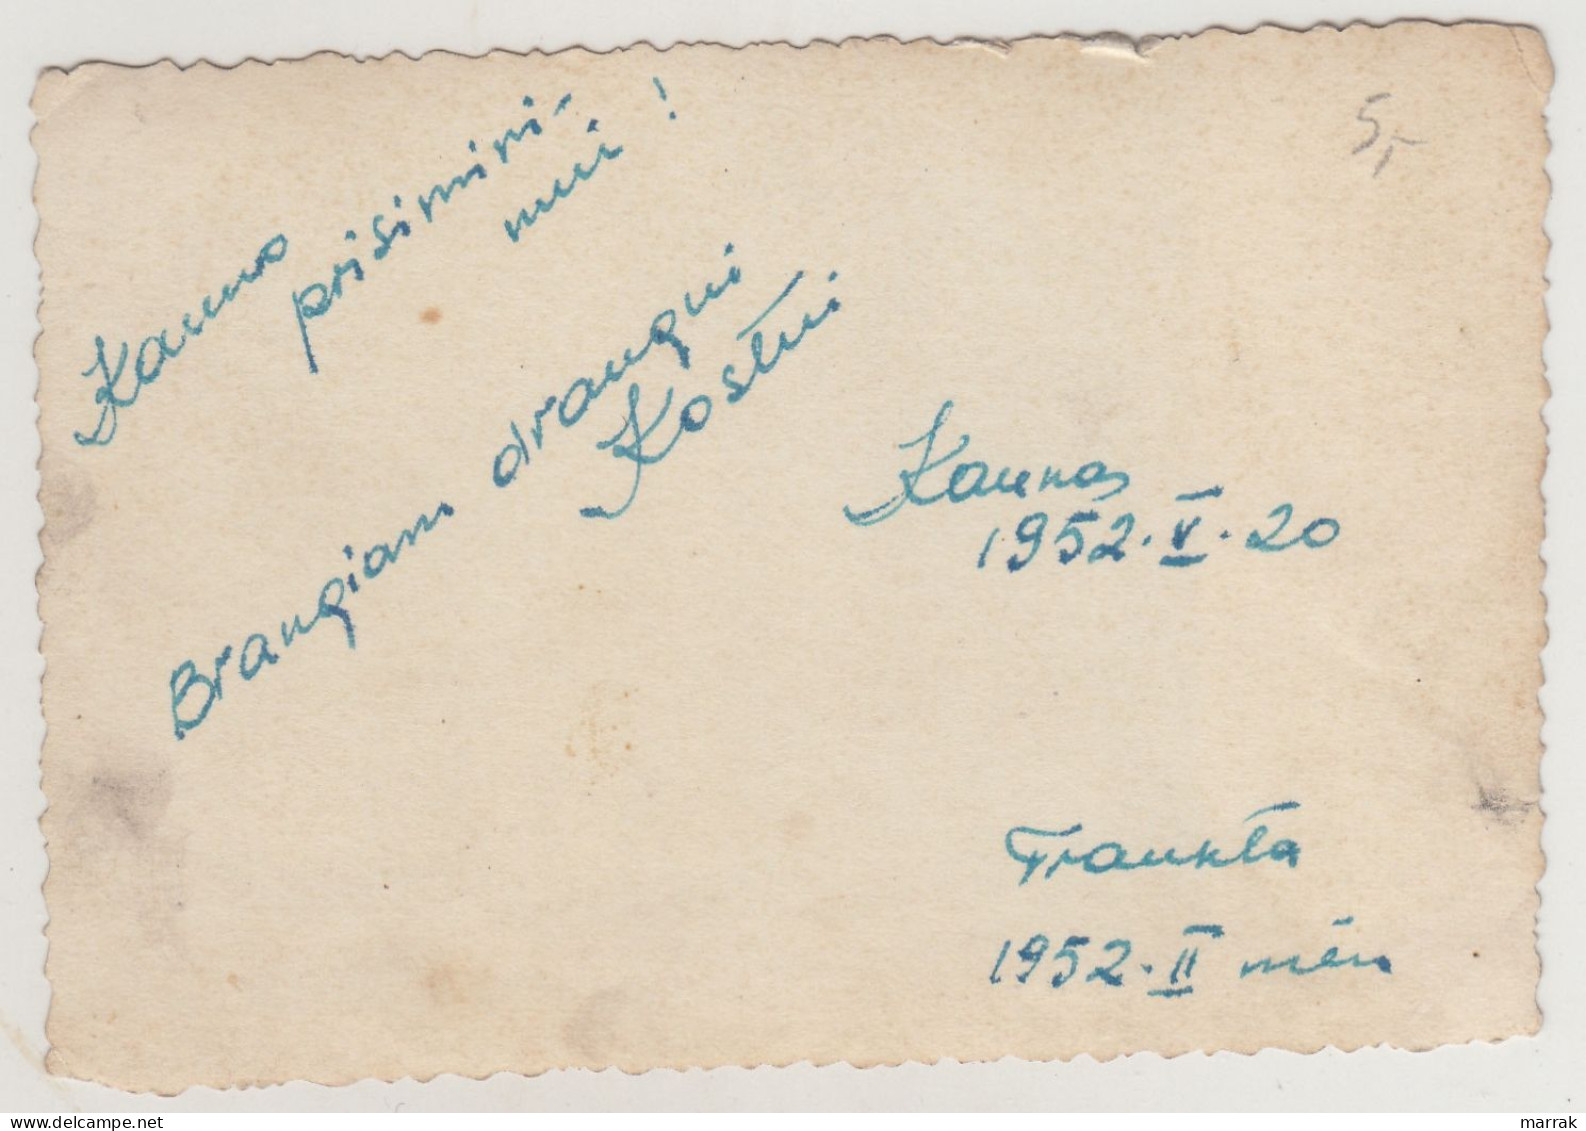 Kauno
prisimini-
mui !
Brangiam draugui
Kostui
Kaunas
1952.V.20
Traukta
1952.II mėn
5,-
www.delcampe.net
marrak